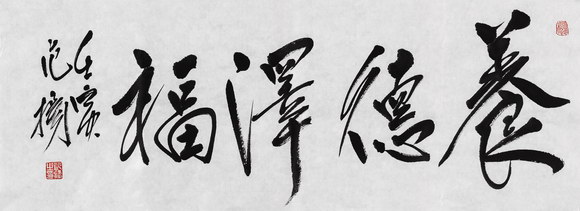 養德澤福
壬寅
范